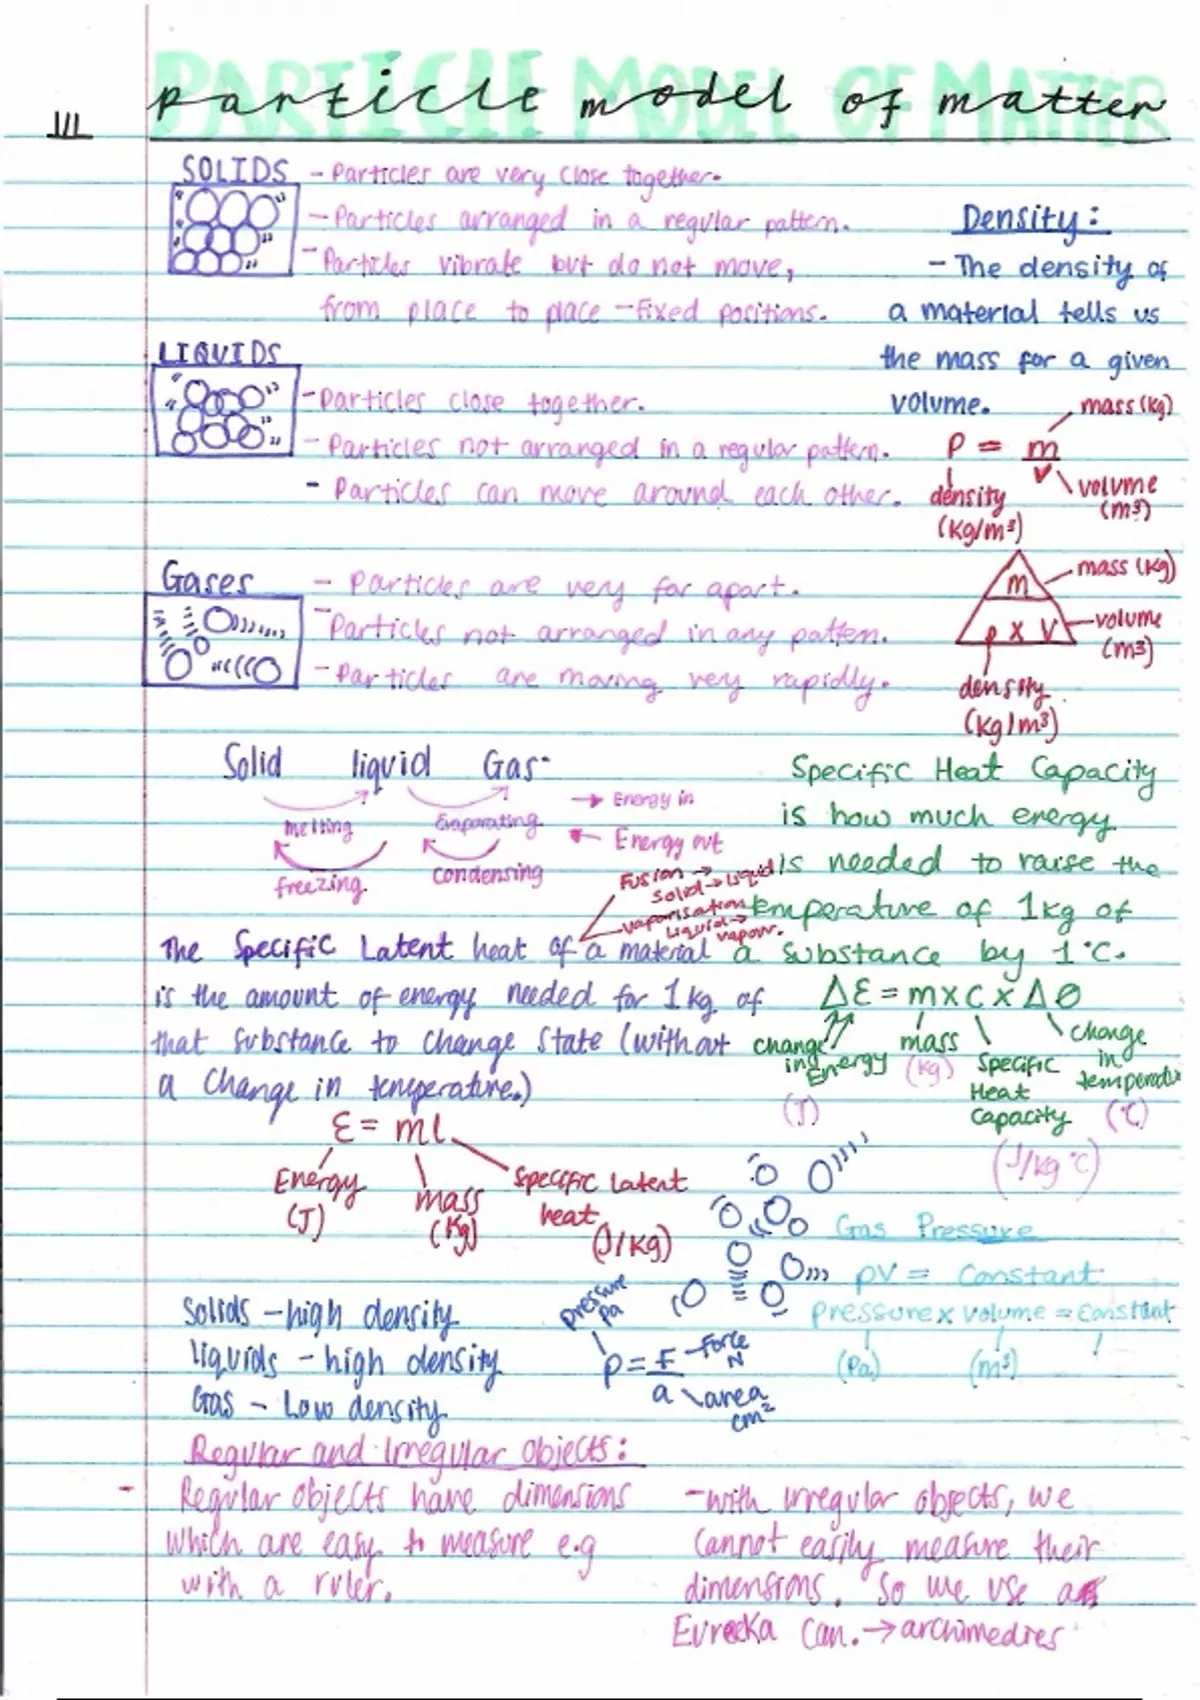 PARTICLE MODEL OF MATTER
particle model of matter
SOLIDS
- Particles are very close together.
- Particles arranged in a regular pattern.
- Particles vibrate but do not move,
from place to place - fixed positions.
LIQUIDS
- Particles close together.
- Particles not arranged in a regular pattern.
- Particles can move around each other.
Gases
- Particles are very far apart.
- Particles not arranged in any pattern.
- Particles are moving very rapidly.
Density:
- The density of
a material tells us
the mass for a given
volume.
mass (kg)
P = m
V
density
(kg/m³)
volume
(m³)
m
mass (kg)
ρ x V
volume
(m³)
density
(kg/m³)
Solid liquid Gas
melting
Evaporating
freezing
condensing
→ Energy in
← Energy out
Specific Heat Capacity
is how much energy
is needed to raise the
temperature of 1kg of
a substance by 1°C.
ΔE = m x c x Δθ
change
in Energy
(J)
mass
(kg)
Specific
Heat
Capacity
(J/kg °C)
change
in
temperature
(°C)
Fusion →
Solid → Liquid
vaporisation
Liquid →
vapour.
The Specific Latent heat of a material
is the amount of energy needed for 1kg of
that substance to change state (without
a change in temperature.)
E = ml
Energy
(J)
mass
(kg)
Specific latent
heat
(J/kg)
Gas Pressure
pV = constant
pressure x volume = constant
(Pa)
(m³)
Solids - high density
liquids - high density
Gas - Low density
pressure
Pa
P = F
a
force
N
area
cm²
Regular and irregular objects:
- Regular objects have dimensions
which are easy to measure e.g
with a ruler.
- with irregular objects, we
cannot easily measure their
dimensions. So we use a
Eureeka can. → archimedies